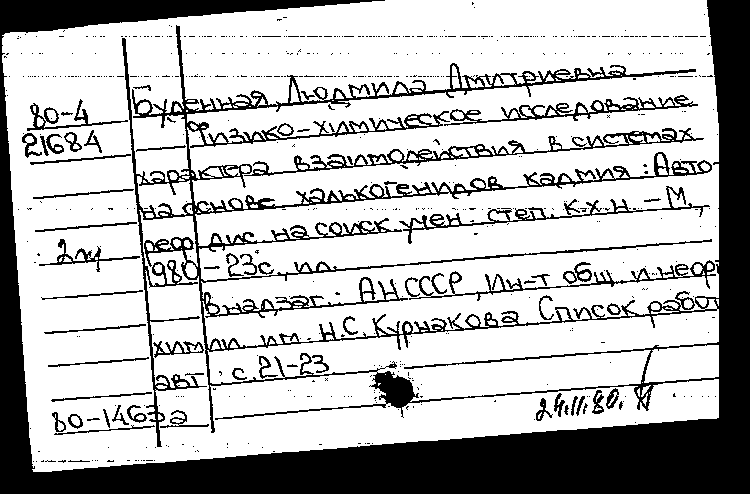 Буденная, Людмила Дмитриевна.
80-4 Физико-химическое исследование
21684 характера взаимодействия в системах
на основе халькогенидов кадмия : Авто-
реф. дис. на соиск. учен. степ. к.х.н. – М.,
1980 – 23с., ил.
В надзаг.: АН СССР, Ин-т общ. и неорг.
химии им. Н.С. Курнакова. Список работ
авт.: с. 21-23
80-1463 а
24.11.80.